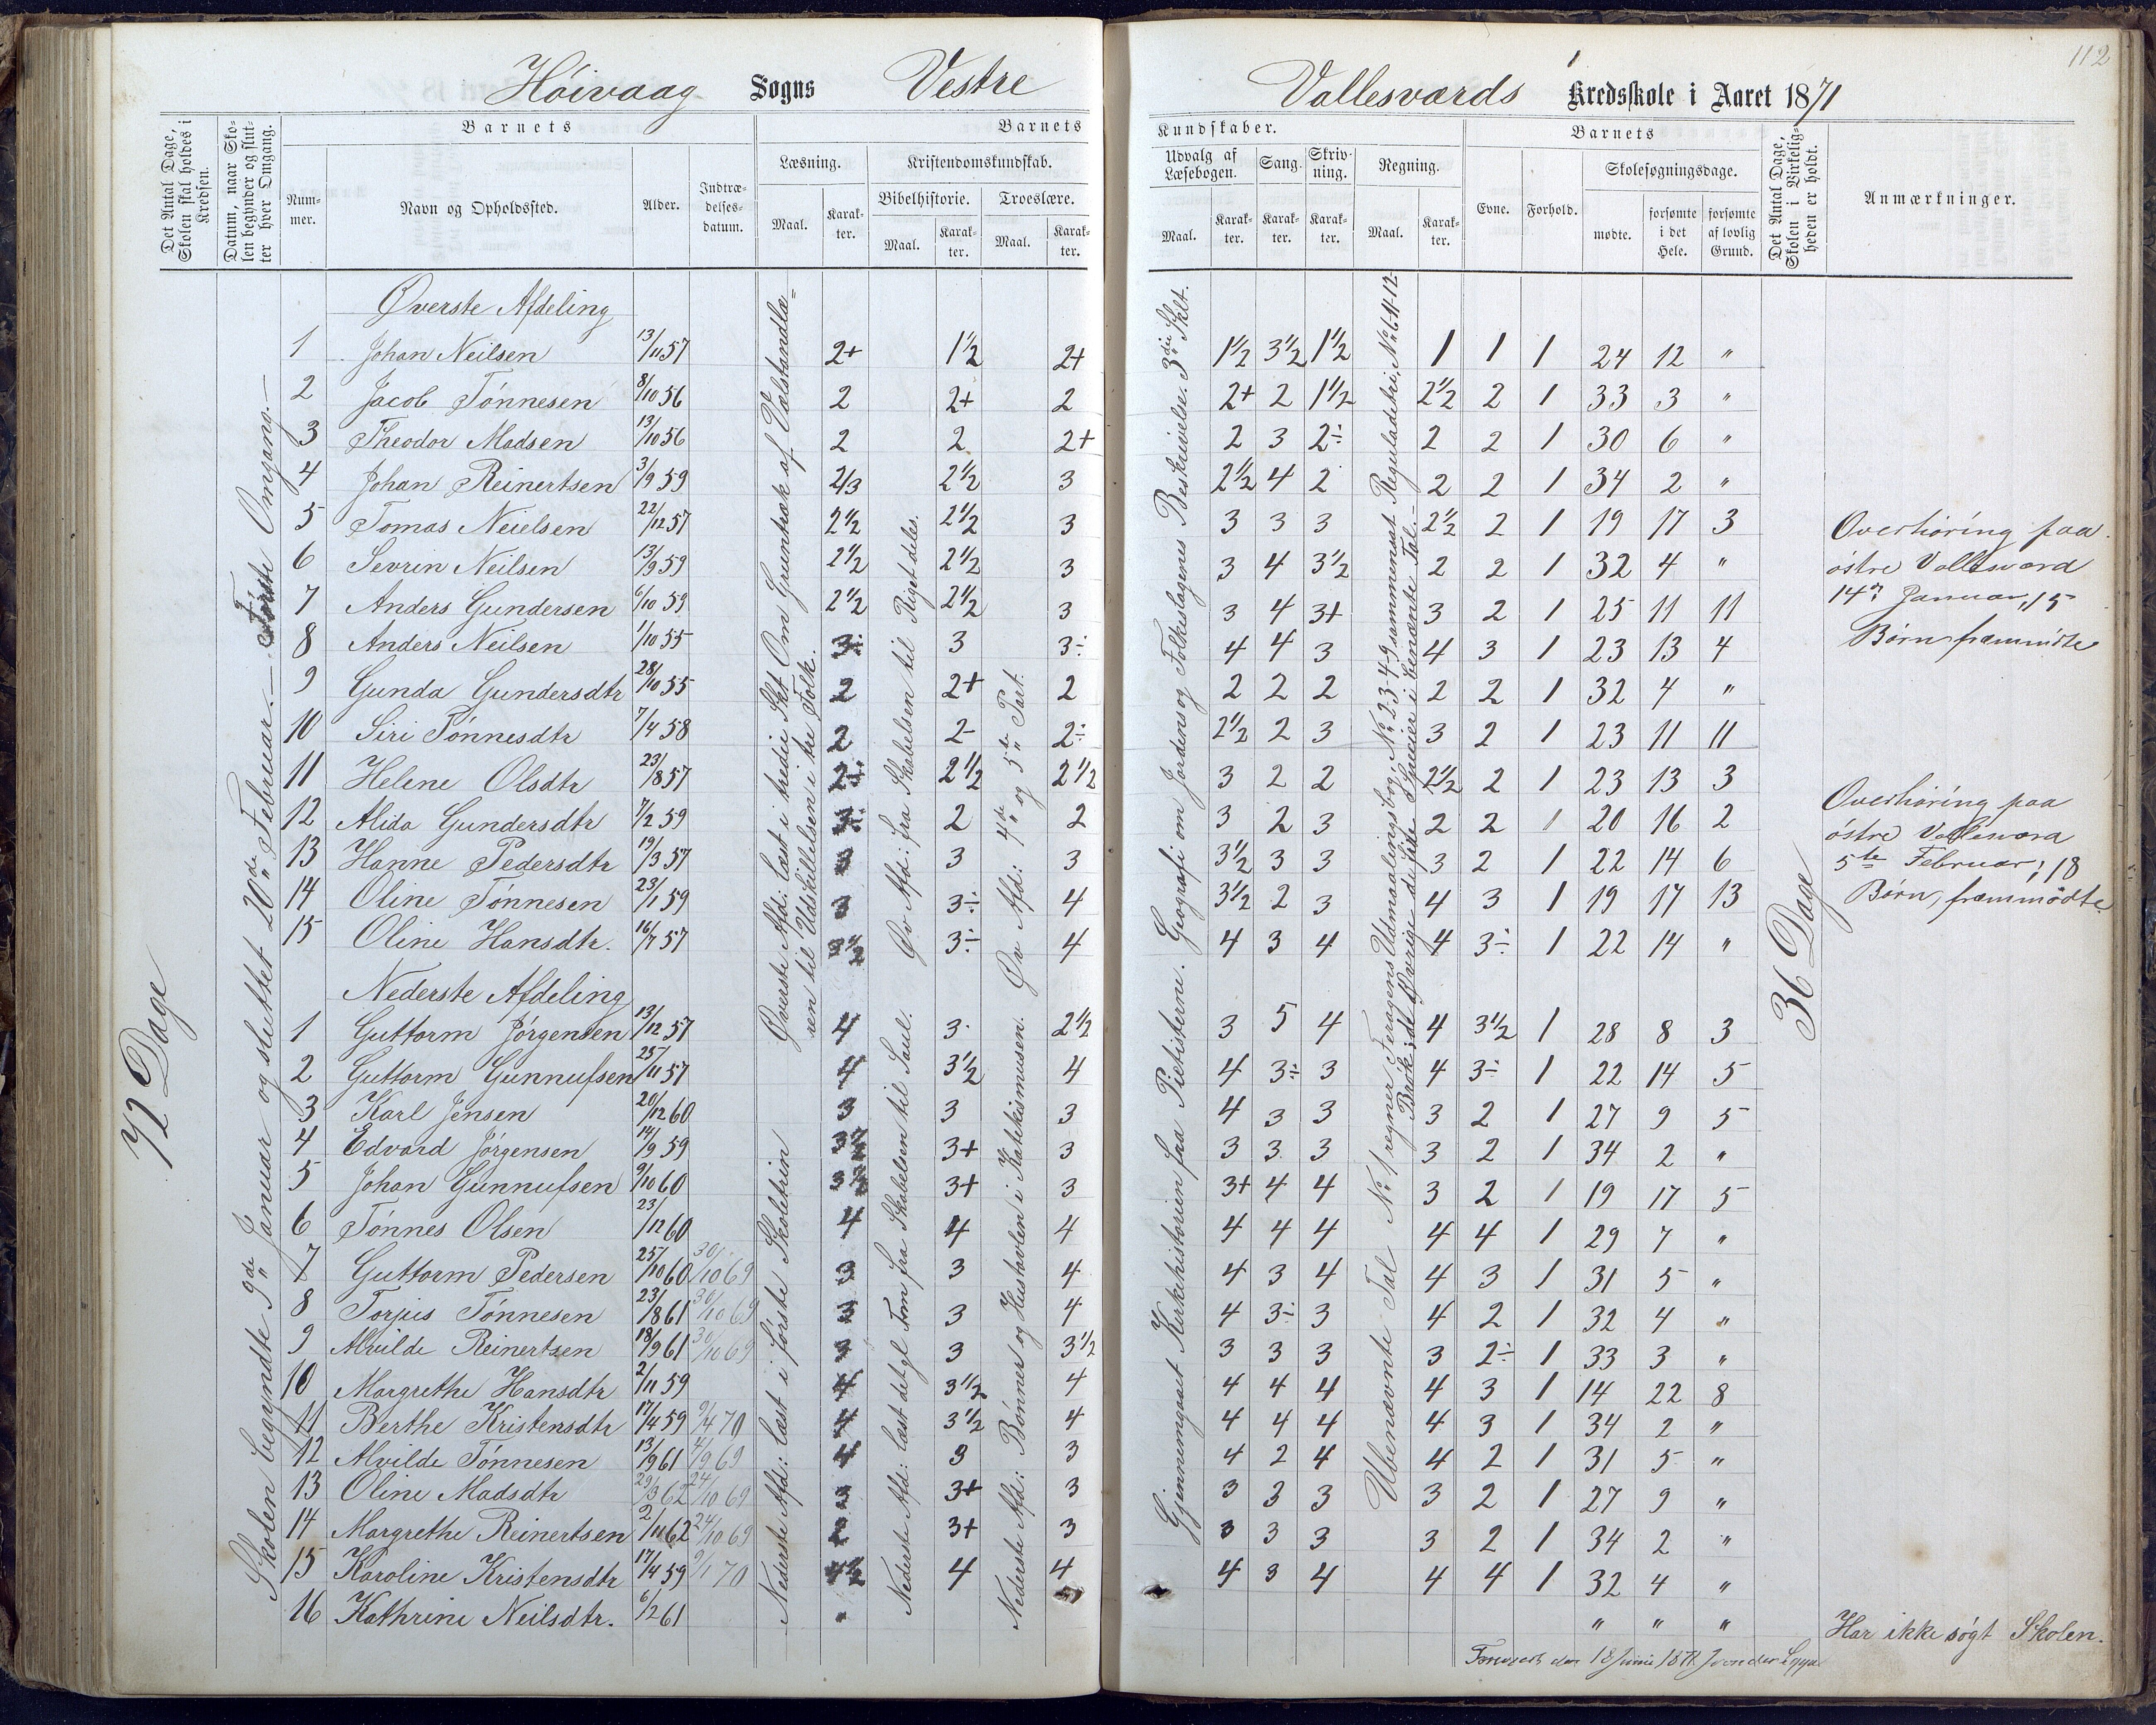 112
Høivaag Sogns Vestre Vallesværds Kredsskole i Aaret 1871
Det Antal Dage, Skolen skal holdes i Kredsen.
Datum, naar Skolen begynder og slutter hver Omgang.
Barnets
Nummer.
Navn og Opholdssted.
Alder.
Indtrædelsesdatum.
Barnets Kundskaber.
Læsning.
Maal.
Karakter.
Kristendomskundskab.
Bibelhistorie.
Maal.
Karakter.
Troeslære.
Maal.
Karakter.
Udvalg af Læsebogen.
Maal.
Karakter.
Sang.
Karakter.
Skrivning.
Karakter.
Regning.
Maal.
Karakter.
Barnets
Evne.
Forhold.
Skolesøgningsdage.
mødte.
forsømte i det Hele.
forsømte af lovlig Grund.
Det Antal Dage, Skolen i Virkeligheden er holdt.
Anmærkninger.
72 Dage
Skolen begyndte 9de Januar og sluttet 20de Februar. — Første Omgang. —
Øverste Afd: læst i tredie Skt Om Grundtræk af Vælstandlæ=
ren til Udskillelsen i tre Folk.
Nederste Afd: læst i første Skoletrin
Øv Afd: fra Skabelsen til Riget deles.
Nederste Afd: læst det gl Tom fra Skabelsen til Saul.
Øv Afd: 4de og 5te Part.
Nederste Afd: Bønner og Hustavlen i Katekismusen.
Gjennemgaaet Kirkehistorien fra Pietisterne. Geografi om Jordens og Folkeslagenes Beskrivelse. 3die Skt.
Ubenævnte Tal
36 Dage
Øverste Afdeling
1 Johan Neilsen 13/11 57 2+ 1½ 2+ 1½ 3½ 1½ 1 1 1 24 12 "
2 Jacob Tønnesen 8/10 56 2 2+ 2 2+ 2 1½ 2½ 2 1 33 3 "
3 Theodor Madsen 13/10 56 2 2 2+ 2 3 2÷ 2 2 1 30 6 "
4 Johan Reinertsen 3/9 59 2/3 2½ 3 2½ 4 2 2 2 1 34 2 "
5 Tomas Neielsen 22/12 57 2½ 2½ 3 3 3 3 2½ 2 1 19 17 3
6 Sevrin Neilsen 13/9 59 2½ 2½ 3 3 4 3½ 2 2 1 32 4 "
7 Anders Gundersen 6/10 59 2½ 2½ 3 3 4 3+ 3 2 1 25 11 11
8 Anders Neilsen 1/10 55 3÷ 3 3÷ 4 4 3 4 3 1 23 13 4
9 Gunda Gundersdtr 28/10 55 2 2+ 2 2 2 2 2 2 1 32 4 "
10 Siri Tønnesdtr 7/4 58 2 2- 2÷ 2½ 2 3 3 2 1 23 11 11
11 Helene Olsdtr 23/8 57 2÷ 2½ 2½ 3 2 2 2½ 2 1 23 13 3
12 Alida Gundersdtr 7/2 59 3÷ 2 2 3 2 3 2 2 1 20 16 2
13 Hanne Pedersdtr 19/3 57 3 3 3 3½ 3 3 3 2 1 22 14 6
14 Oline Tønnesen 23/1 59 3 3÷ 4 3½ 2 3 4 3 1 19 17 13
15 Oline Hansdtr. 16/7 57 3½ 3÷ 4 4 3 4 4 3÷ 1 22 14 "
Nederste Afdeling
1 Guttorm Jørgensen 13/12 57 4 3 2½ 3 5 4 4 3½ 1 28 8 3
2 Guttorm Gunnufsen 25/11 57 4 3½ 4 4 3÷ 3 4 3÷ 1 22 14 5
3 Karl Jensen 20/12 60 3 3 3 4 3 3 3 2 1 27 9 5
4 Edvard Jørgensen 14/9 59 3½ 3+ 3 3 3 3 3 2 1 34 2 "
5 Johan Gunnufsen 9/10 60 3½ 3+ 3 3+ 4 4 3 2 1 19 17 5
6 Tønnes Olsen 23/12 60 4 4 4 4 4 4 4 4 1 29 7 "
7 Guttorm Pedersen 25/10 60 30/10 69 3 3 4 4 3 4 4 3 1 31 5 "
8 Torjus Tønnesen 23/8 61 30/10 69 3 3 4 4 3÷ 3 4 2 1 32 4 "
9 Alvilde Reinertsen 18/9 61 30/10 69 3 3 3½ 3 3 3 3 2÷ 1 33 3 "
10 Margrethe Hansdtr 2/11 59 4 3½ 4 4 4 4 4 3 1 14 22 8
11 Berthe Kristensdtr 17/4 59 9/4 70 4 3½ 4 4 4 4 4 3 1 34 2 "
12 Alvilde Tønnesen 13/9 61 4/9 69 4 3 3 4 2 4 4 2 1 31 5 "
13 Oline Madsdtr 29/3 62 24/10 69 3 3+ 3 3 3 3 3 2 1 27 9 "
14 Margrethe Reinertsen 2/11 62 24/10 69 2 3+ 3 3 3 3 3 2 1 34 2 "
15 Karoline Kristensdtr 17/4 59 9/1 70 4½ 4 4 4 3 4 4 4 1 32 4 "
16 Kathrine Neilsdtr. 6/2 61 " " " "
Overhøring paa
østre Vallesværd
14de Januar, 15
Børn fremmødte
Overhøring paa
østre Vallesværd
5te Februar; 18
Børn, fremmødte
Har ikke søgt Skolen.